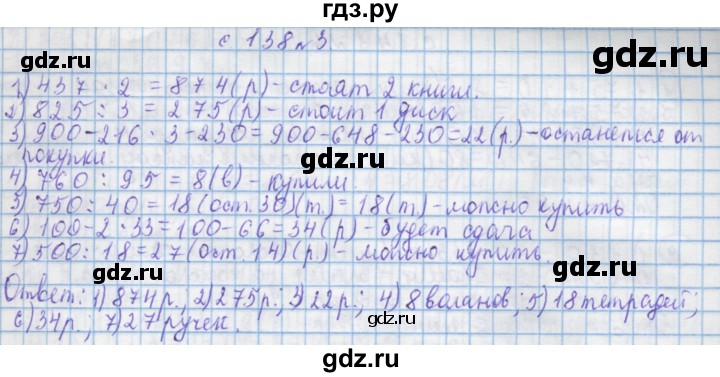 гдз.ру
с 138 №3
gdz.ru gdz.ru
1) 437 · 2 = 874 (р) - стоят 2 книги.
2) 825 : 3 = 275 (р) - стоит 1 диск
3) 900-216 · 3-230=900-648-230=22(р.)-останется от
покупки.
gdz.ru gdz.ru
4) 760 : 95 = 8(в) - купили.
5) 750: 40=18(ост.30)(т.)=18(т.)-можно купить
6) 100-2·33=100-66=34(р)-будет сдача
7) 500: 18=27(ост.14)(р.)- можно купить.
gdz.ru gdz.ru
Ответ: 1) 874р., 2) 275р.; 3) 22р.; 4) 8 воланов; 5) 18 тетрадей;
6) 34р.; 7) 27 ручек.
gdz.ru gdz.ru